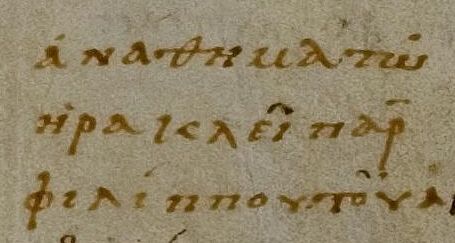 ἀναθήματα τῶ
Ἡρακλεῖ παρ
Φιλίππου τοῦ